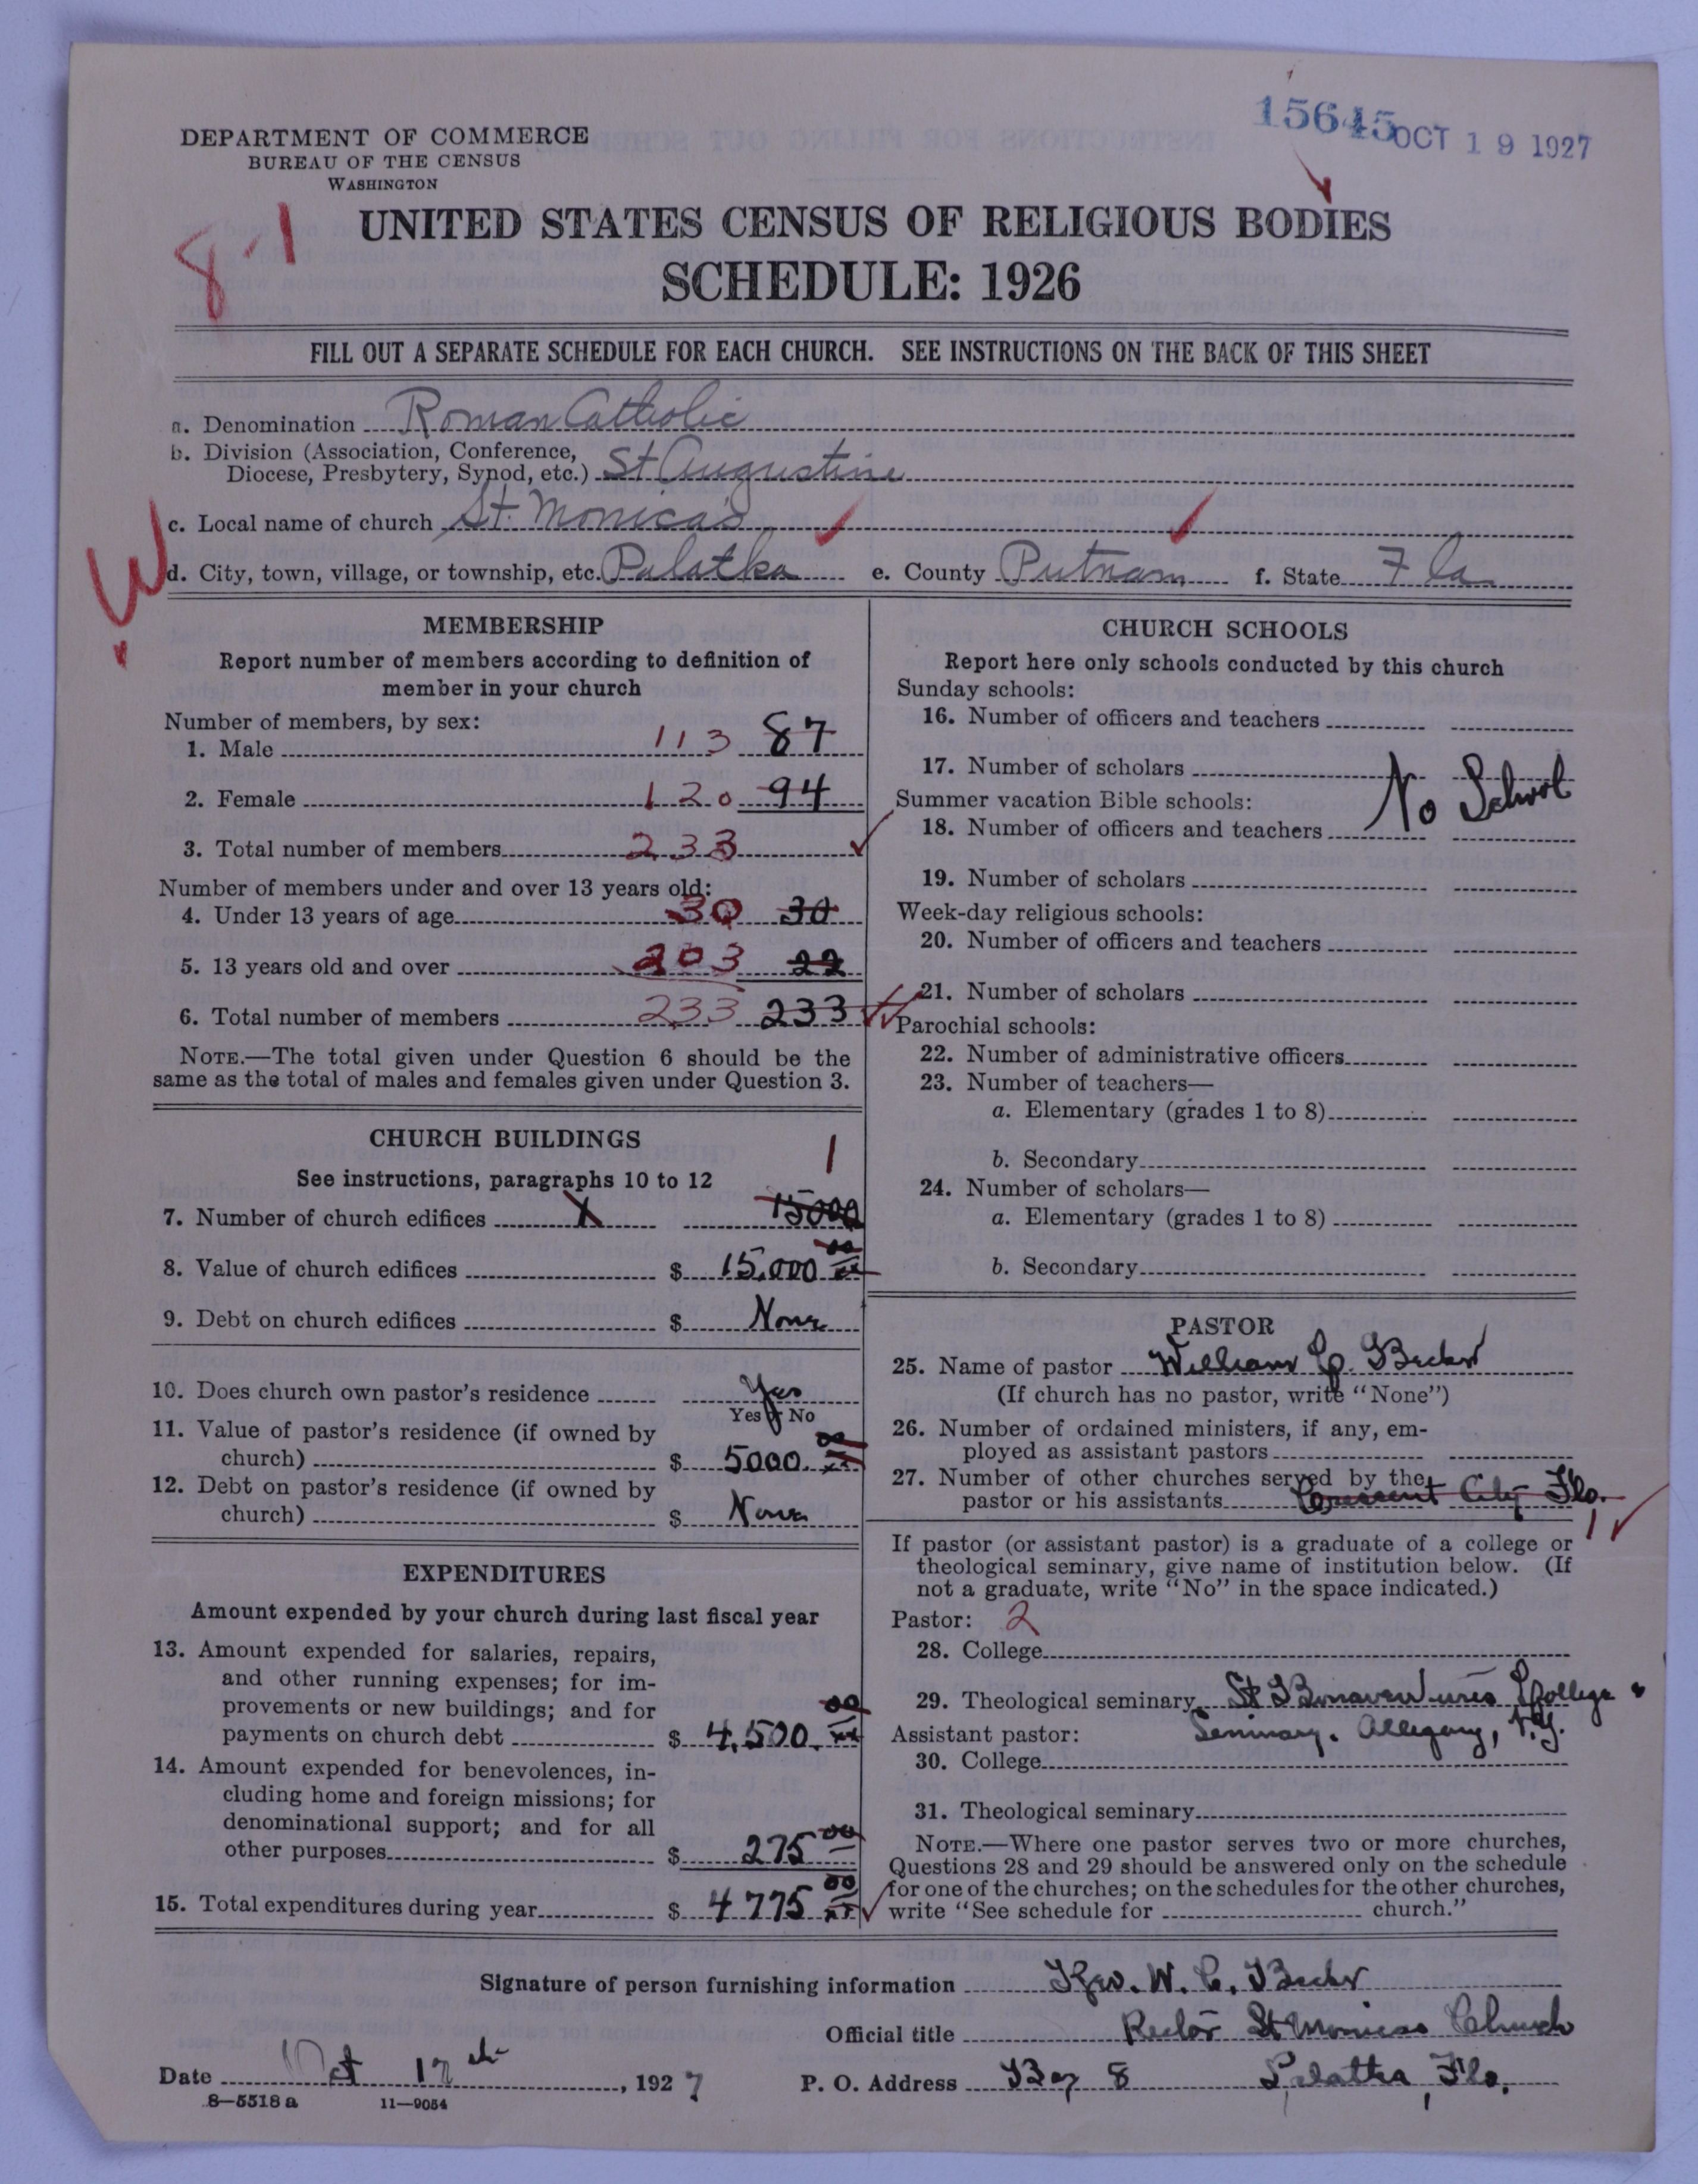 15645 OCT 19 1927
DEPARTMENT OF COMMERCE
BUREAU OF THE CENSUS
WASHINGTON
8-1
UNITED STATES CENSUS OF RELIGIOUS BODIES
SCHEDULE: 1926
FILL OUT A SEPARATE SCHEDULE FOR EACH CHURCH. SEE INSTRUCTIONS ON THE BACK OF THIS SHEET
a. Denomination Roman Catholic
b. Division (Association, Conference,
Diocese, Presbytery, Synod, etc.) St Augustine
c. Local name of church St. Monica's
W
d. City, town, village, or township, etc. Palatka e. County Putnam f. State Fla
MEMBERSHIP
Report number of members according to definition of
member in your church
Number of members, by sex:
1. Male 113 87
2. Female 120 94
3. Total number of members 233
Number of members under and over 13 years old:
4. Under 13 years of age 30 30
5. 13 years old and over 203 22
6. Total number of members 233 233
NOTE.—The total given under Question 6 should be the
same as the total of males and females given under Question 3.
CHURCH BUILDINGS
1
See instructions, paragraphs 10 to 12
7. Number of church edifices X 15000
8. Value of church edifices $ 15,000 00
9. Debt on church edifices $ None
10. Does church own pastor's residence Yes
Yes or No
11. Value of pastor's residence (if owned by
church) $ 5000 00
12. Debt on pastor's residence (if owned by
church) $ None
EXPENDITURES
Amount expended by your church during last fiscal year
13. Amount expended for salaries, repairs,
and other running expenses; for im-
provements or new buildings; and for
payments on church debt $ 4,500. 00
14. Amount expended for benevolences, in-
cluding home and foreign missions; for
denominational support; and for all
other purposes $ 275 00
15. Total expenditures during year $ 4775 00
CHURCH SCHOOLS
Report here only schools conducted by this church
Sunday schools:
16. Number of officers and teachers
17. Number of scholars
No School
Summer vacation Bible schools:
18. Number of officers and teachers
19. Number of scholars
Week-day religious schools:
20. Number of officers and teachers
21. Number of scholars
Parochial schools:
22. Number of administrative officers
23. Number of teachers—
a. Elementary (grades 1 to 8)
b. Secondary
24. Number of scholars—
a. Elementary (grades 1 to 8)
b. Secondary
PASTOR
25. Name of pastor William C. Becker
(If church has no pastor, write "None")
26. Number of ordained ministers, if any, em-
ployed as assistant pastors
27. Number of other churches served by the
pastor or his assistants Crescent City Fla.
1
If pastor (or assistant pastor) is a graduate of a college or
theological seminary, give name of institution below. (If
not a graduate, write "No" in the space indicated.)
Pastor: 2
28. College
29. Theological seminary St Bonaventures College &
Assistant pastor: Seminary. Allegany, N.Y.
30. College
31. Theological seminary
NOTE.—Where one pastor serves two or more churches,
Questions 28 and 29 should be answered only on the schedule
for one of the churches; on the schedules for the other churches,
write "See schedule for church."
Signature of person furnishing information Rev. W. C. Becker
Official title Rector St Monicas Church
Date Oct 17th, 1927 P. O. Address Box 8 Palatka, Fla.
8—5518 a 11—9054